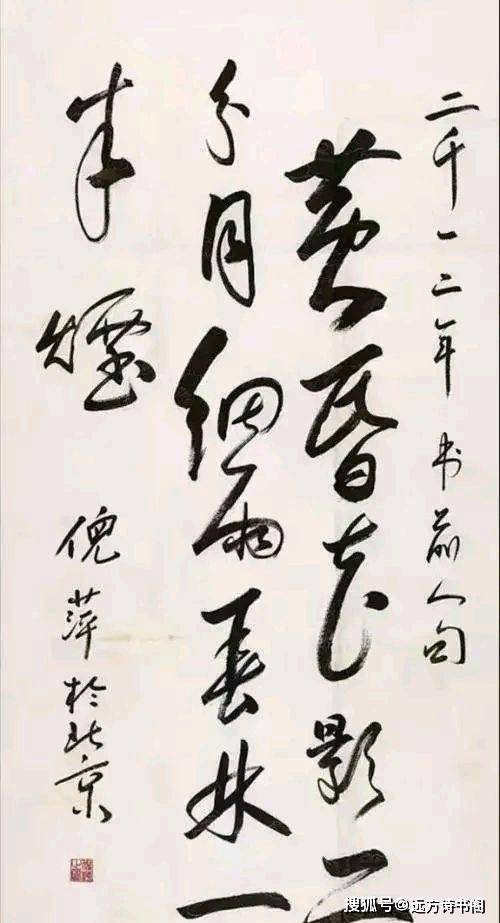 二千一二年 书前人句
黄昏花影二
分月细雨春林一
半煙 倪萍於北京
搜狐号@远方诗书阁